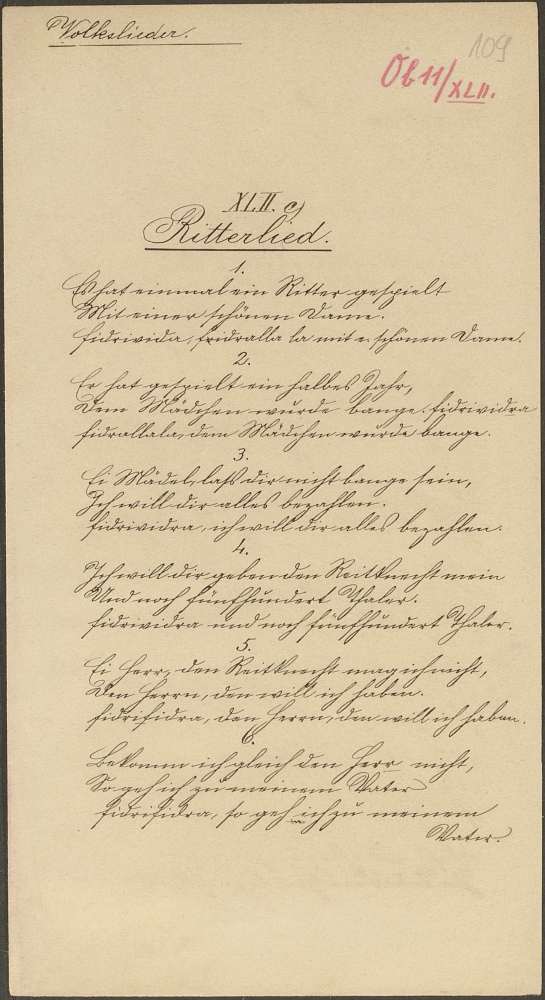 Volkslieder.
109
Ob 11/XLII.
XLII. c)
Ritterlied.
1.
Es hat einmal ein Ritter gespielt
Mit einer schönen Dame.
fidrivida, fridralla la mit e. schönen Dame.
2.
Er hat gespielt ein halbes Jahr,
Dem Mädchen wurde bange. fidrividra
fidrallala, dem Mädchen wurde bange.
3.
Ei Mädel, lass dir nicht bange sein,
Ich will dir alles bezahlen.
fidrividra, ich will dir alles bezahlen.
4.
Ich will dir geben den Reitknecht mein
Und noch fünfhundert Thaler.
fidrividra und noch fünfhundert Thaler.
5.
Ei Herr, den Reitknecht mag ich nicht,
Den Herrn, den will ich haben.
fidrifidra, den Herrn, den will ich haben.
6.
Bekomm ich gleich den Herr nicht,
So geh ich zu meinem Vater
fidrifidra, so geh ich zu meinem
Vater.